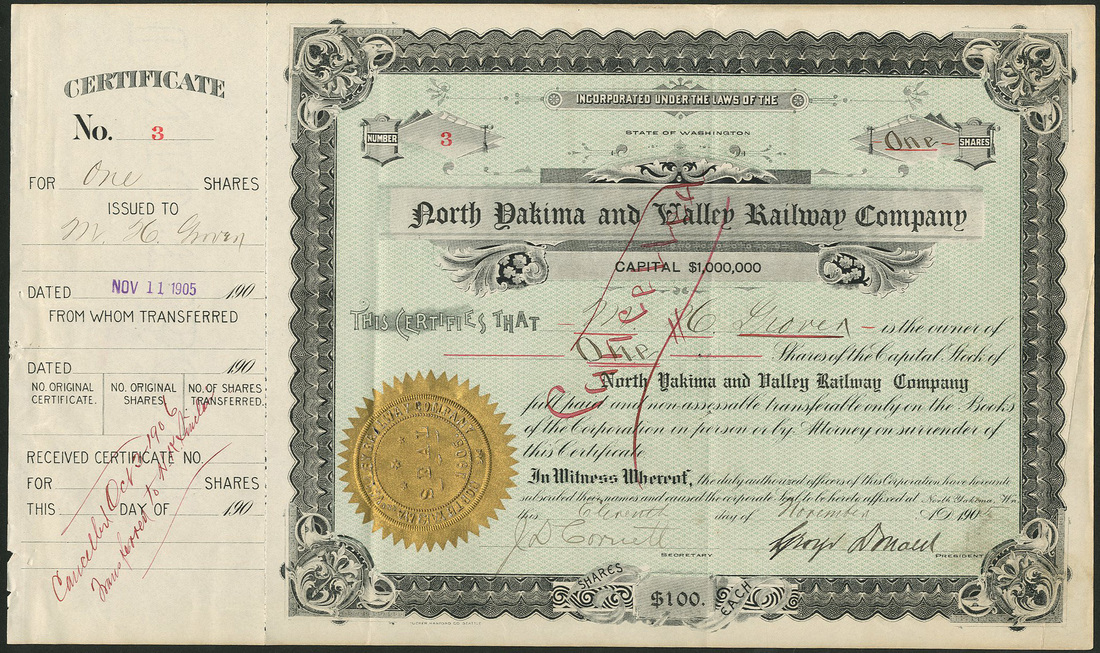 CERTIFICATE
No. 3
FOR One SHARES
ISSUED TO
M. H. Grover
DATED NOV 11 1905 190
FROM WHOM TRANSFERRED
DATED 190
NO. ORIGINAL CERTIFICATE. NO. ORIGINAL SHARES. NO. OF SHARES TRANSFERRED.
RECEIVED CERTIFICATE NO.
FOR SHARES
THIS DAY OF 190
Cancelled Oct 1906
Transferred to
INCORPORATED UNDER THE LAWS OF THE
STATE OF WASHINGTON
NUMBER 3
-One- SHARES
North Yakima and Valley Railway Company
CAPITAL $1,000,000
THIS CERTIFIES THAT - M. H. Grover - is the owner of
One Shares of the Capital Stock of
North Yakima and Valley Railway Company
full paid and non-assessable transferable only on the Books
of the Corporation in person or by Attorney on surrender of
this Certificate
In Witness Whereof, the duly authorized officers of this Corporation have hereunto
subscribed their names and caused the corporate Seal to be hereto affixed at North Yakima, Wn.
this Eleventh day of November AD 1905
J D Cornett
SECRETARY
PRESIDENT
Cancelled
SEAL
SHARES $100. EACH